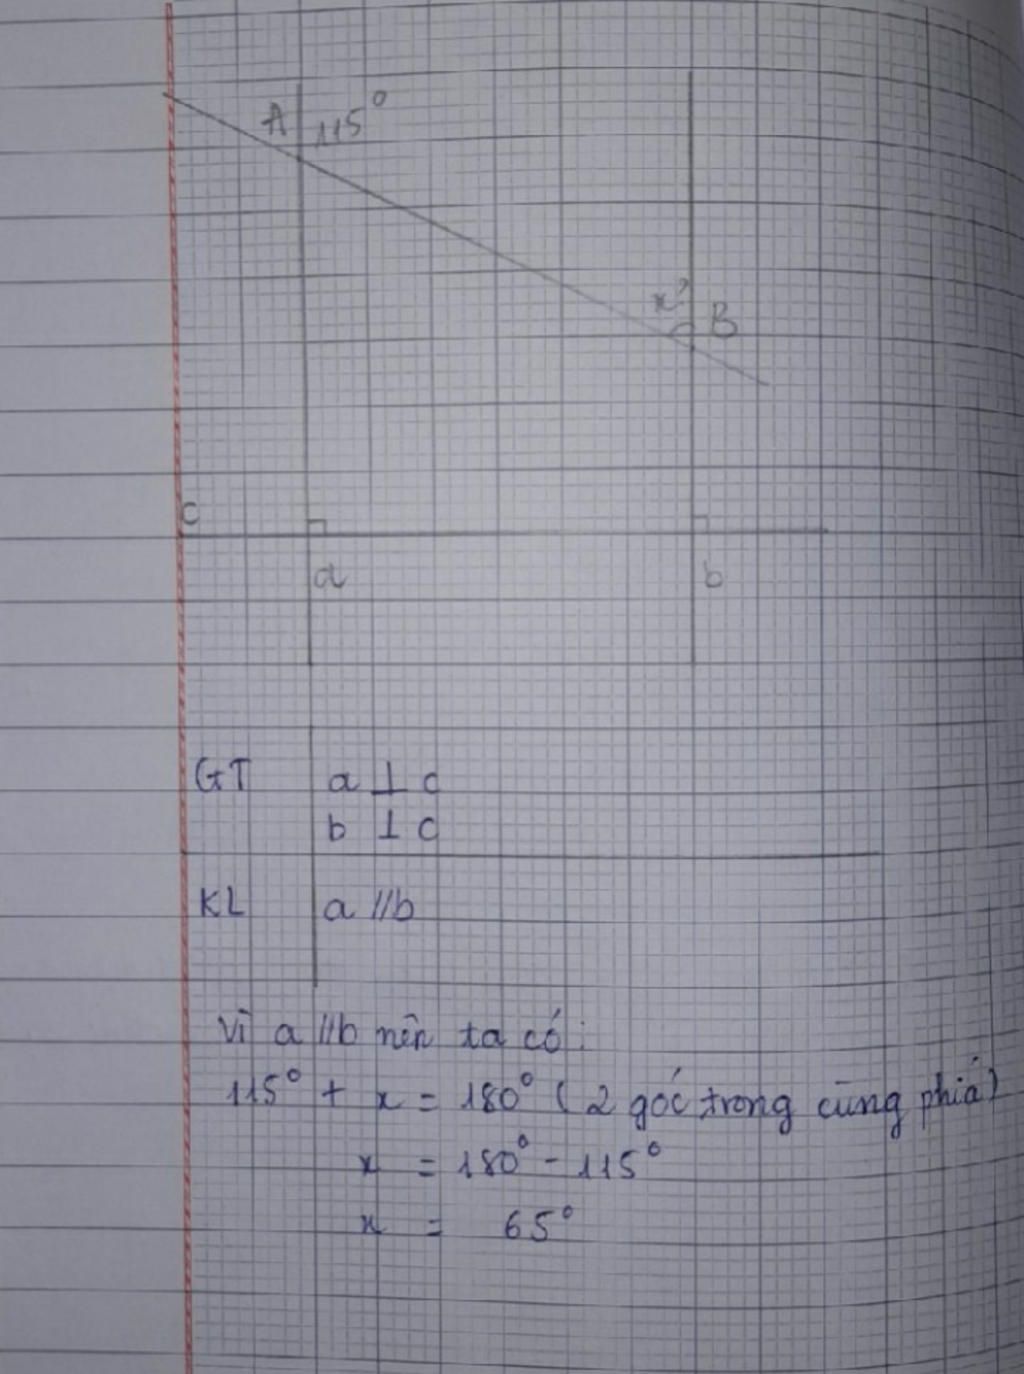 A 115°
x?
B
c
a b
GT a ⊥ c
b ⊥ c
KL a // b
Vì a // b nên ta có:
115° + x = 180° (2 góc trong cùng phía)
x = 180° - 115°
x = 65°